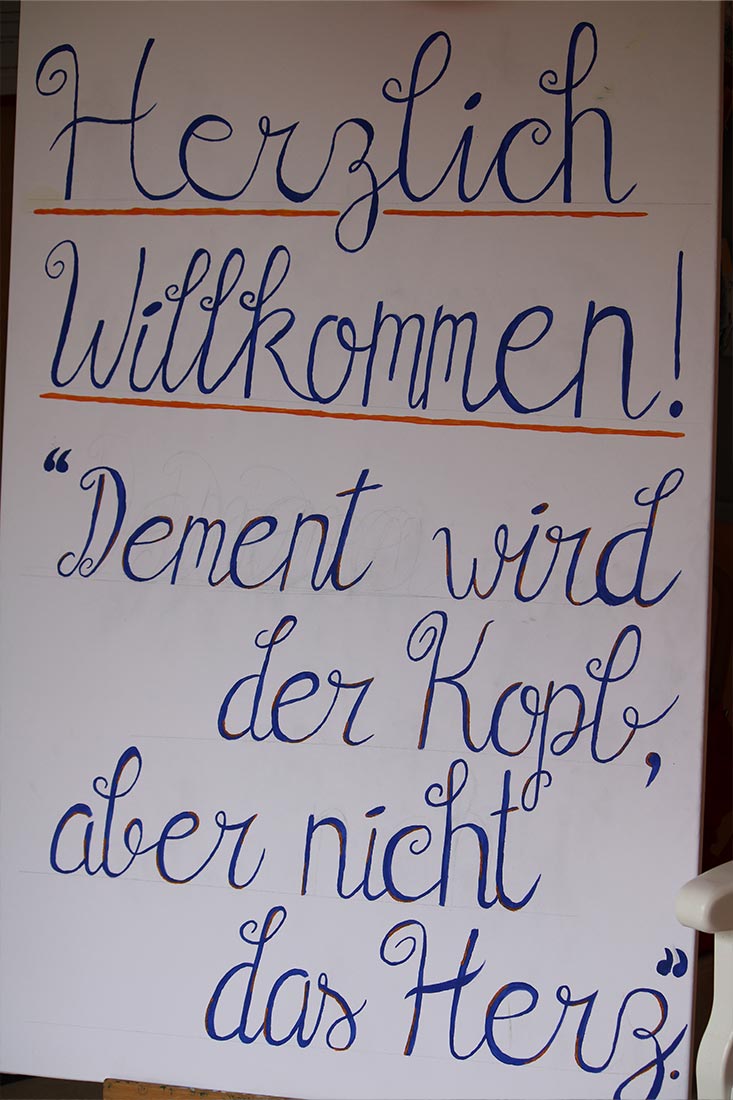 Herzlich
Willkommen!
“Dement wird
der Kopf,
aber nicht
das Herz.”